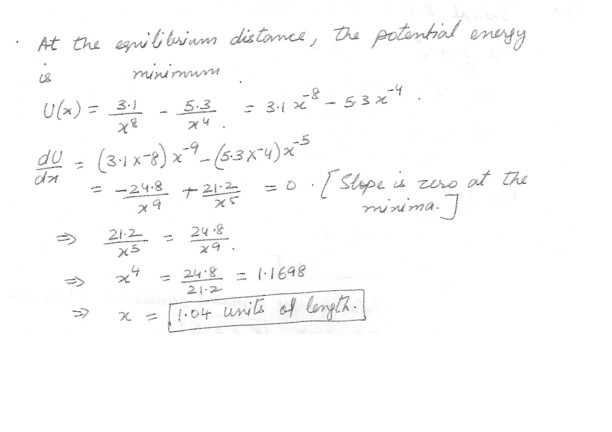 · At the equilibrium distance, the potential energy
is minimum.
U(x) = 3.1/x⁸ - 5.3/x⁴. = 3.1 x⁻⁸ - 5.3 x⁻⁴.
dU/dx = (3.1 x -8) x⁻⁹ - (5.3 x -4) x⁻⁵
= -24.8/x⁹ + 21.2/x⁵ = 0. [Slope is zero at the
minima.]
⇒ 21.2/x⁵ = 24.8/x⁹.
⇒ x⁴ = 24.8/21.2 = 1.1698
⇒ x = 1.04 units of length.